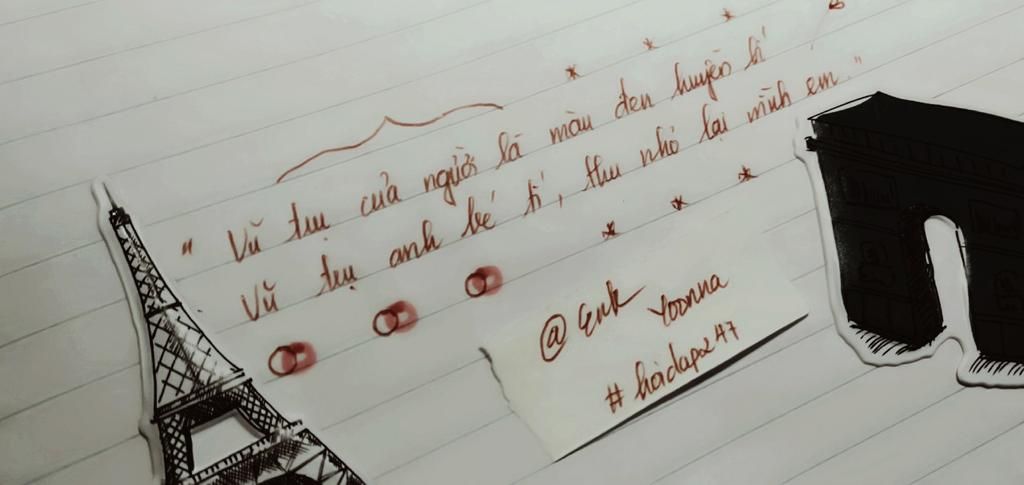 " Vũ trụ của người là màu đen huyền bí
Vũ trụ anh bé tí, thu nhỏ lại mình em. "
@ Enk
Yoonna
# hoidap247